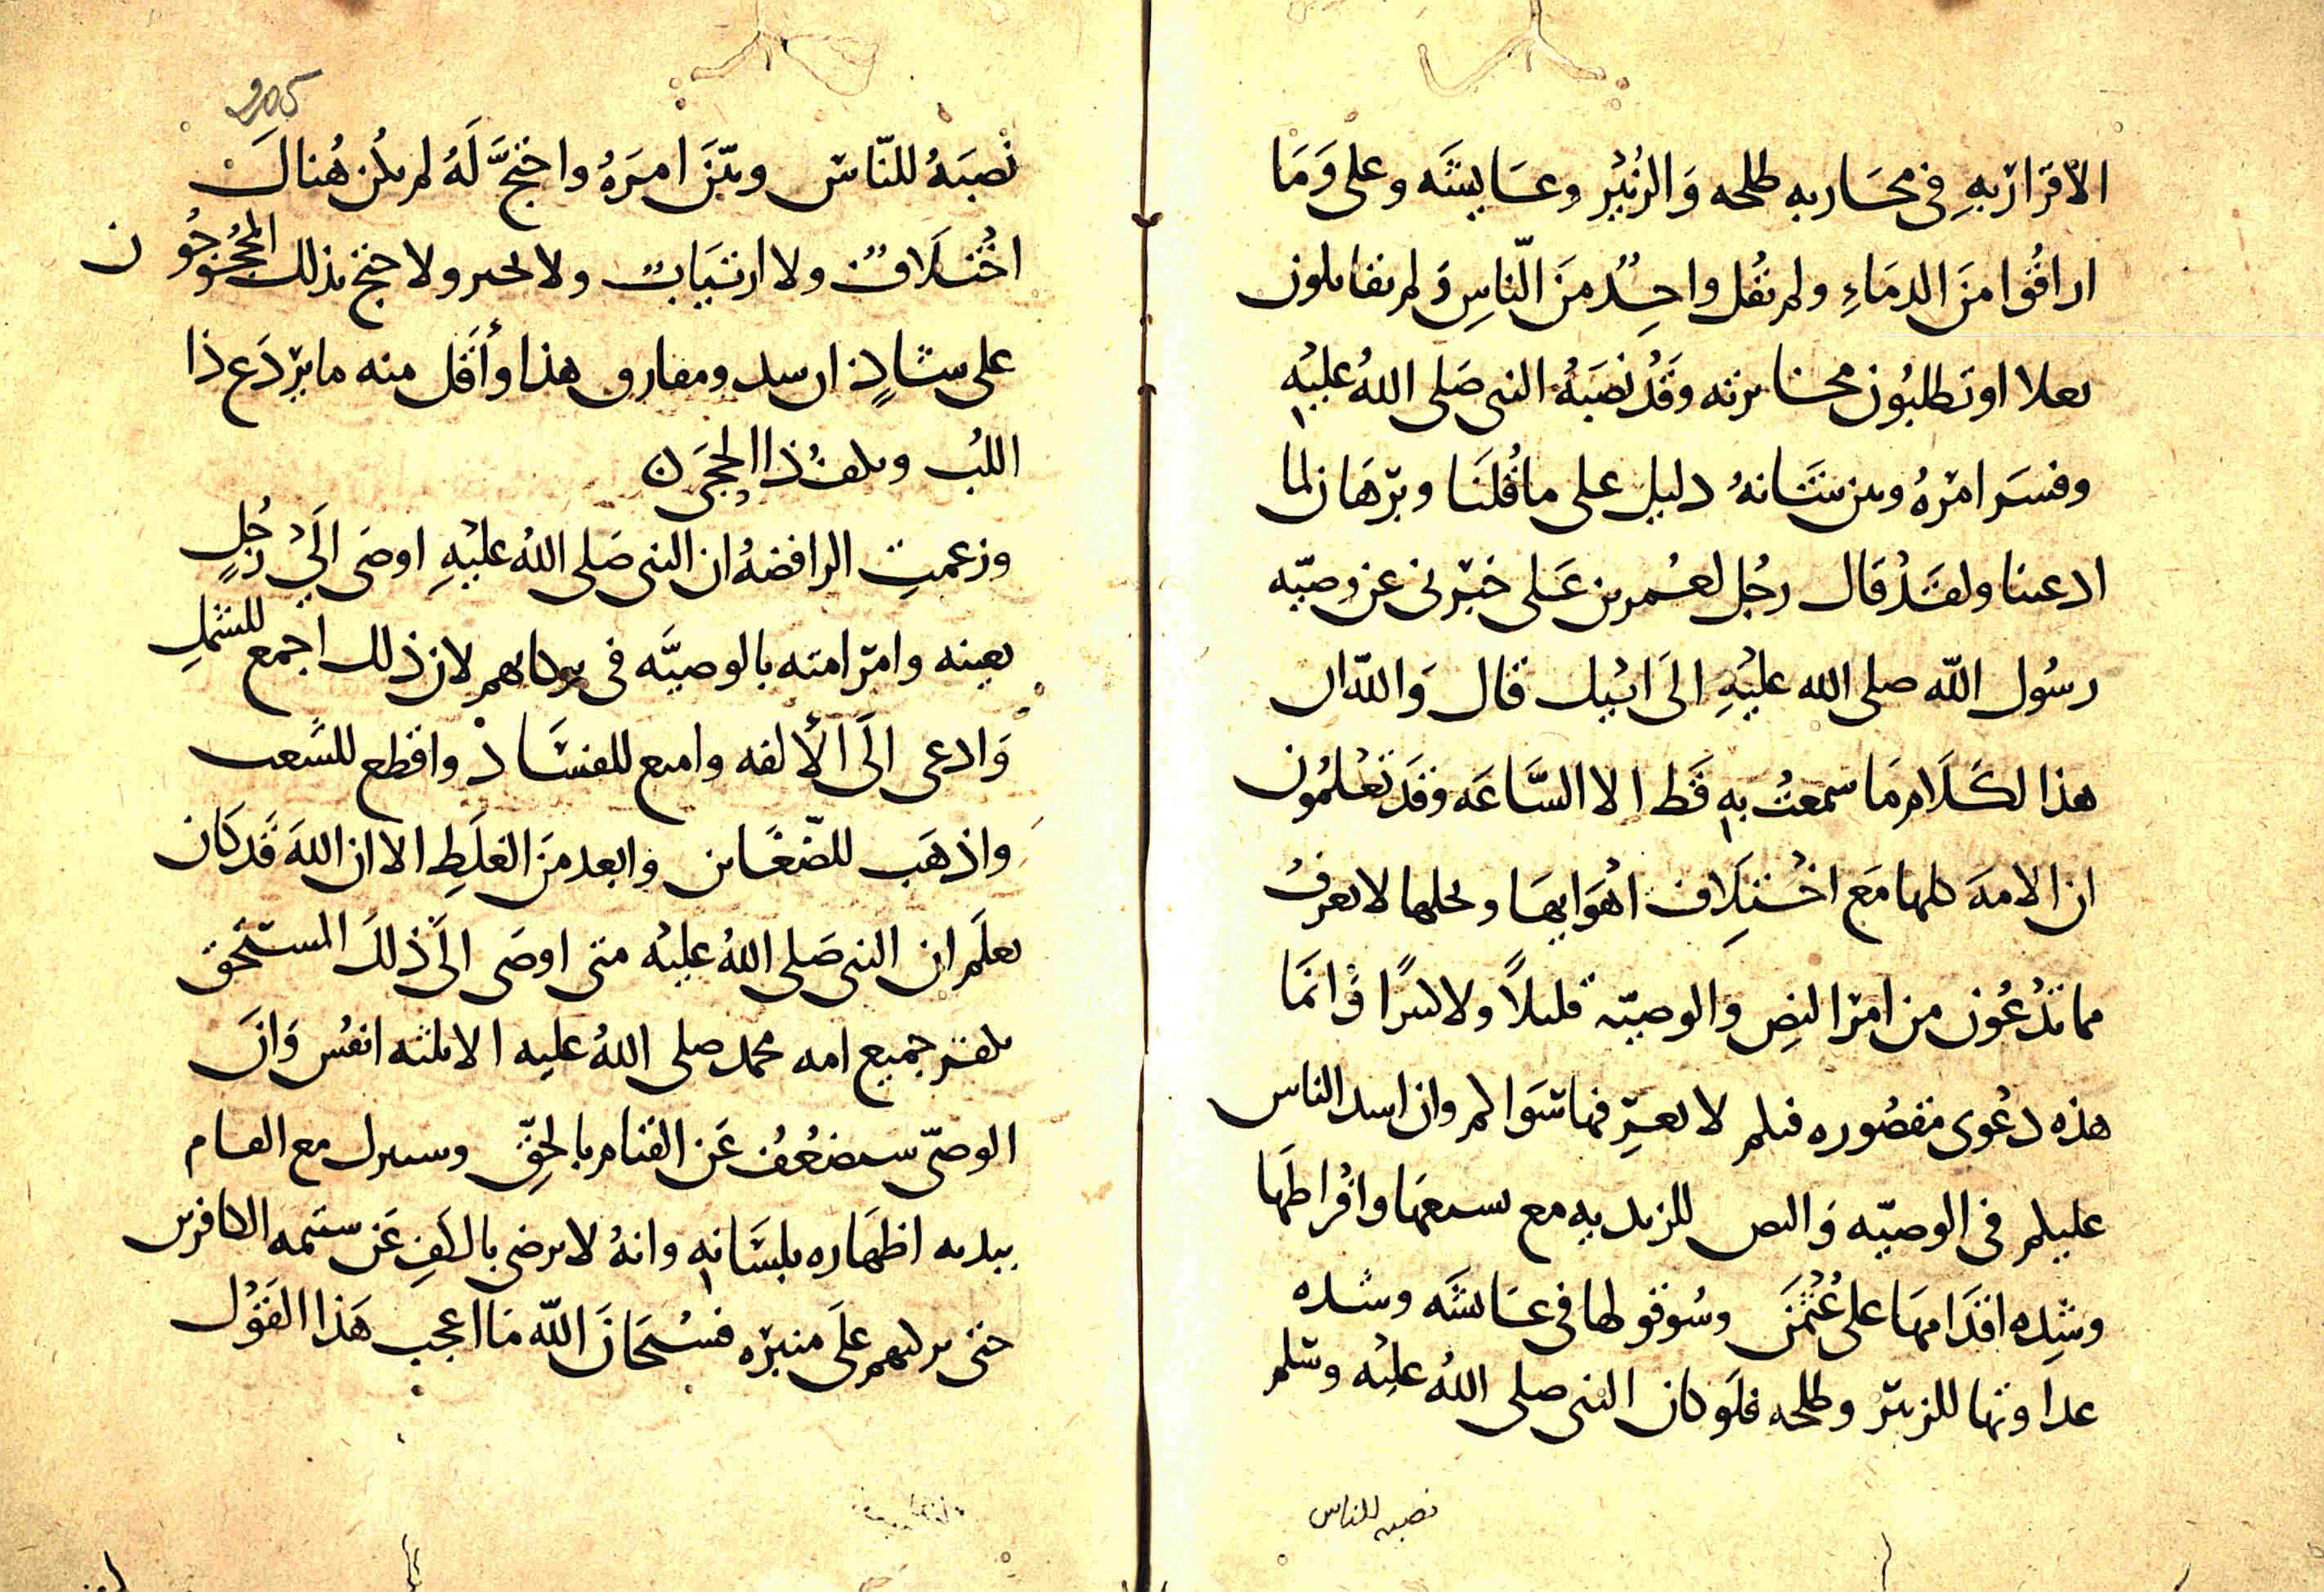 الاقرار به في محاربه طلحه والزبير وعايشه وعلى وما
اراقوا من الدماء ولم تقل واحد من الناس ولم تقاتلون
او تطلبون وقد نصبه النبي صلى الله عليه
وفسر امره وبين شانه دليل على ما قلنا وبرهان لما
ادعينا ولقد قال رجل لعمر بن على خبرني عن وصيه
رسول الله صلى الله عليه الى ابيك قال والله ان
هذا لكلام ما سمعت به قط الا الساعه وقد تعلمون
ان الامه كلها مع اختلاف اهوايها ونحلها لا يعرف
مما تدعون من امر النص والوصيه قليلا ولا كثيرا وانما
هذه دعوى مقصوره فيكم لا تعرفها سواكم وان اشد الناس
عليكم في الوصيه والنص الزيديه مع تشيعها وافراطها
وشده اقدامها على عثمن وسوقولها في عايشه وشده
عداوتها للزبير وطلحه فلو كان النبي صلى الله عليه وسلم
نصبه للناس
نصبه للناس وبين امره واحتج له لم يكن هناك
اختلاف ولا ارتياب ولا تحير ولا احتج بذلك المحجوجون
على شاذ ان شد ومفارق هذا وأقل منه ما يردع ذا
اللب ويكف ذا الحجر ن
وزعمت الرافضه ان النبي صلى الله عليه اوصى الى رجل
بعينه وامر امته بالوصيه في لان ذلك اجمع للشمل
وادعى الى الألفه وامنع للفساد واقطع للشغب
واذهب للضغاين وابعد من الغلط الا ان الله قد كان
يعلم ان النبي صلى الله عليه متى اوصى الى ذلك المستحق
يكفر جميع امه محمد صلى الله عليه الا ثلثه انفس وان
الوصي سيضعف عن القيام بالحق وسيترك مع القيام
بيديه اظهاره بلسانه وانه لا يرضى بالكف عن شتمه الكافرين
حتى يزكيهم على منبره فسبحان الله ما اعجب هذا القول